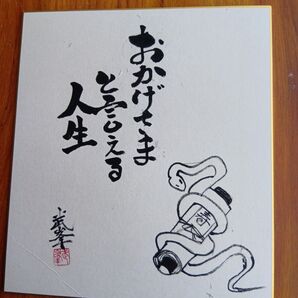 おかげさま
と言える
人生